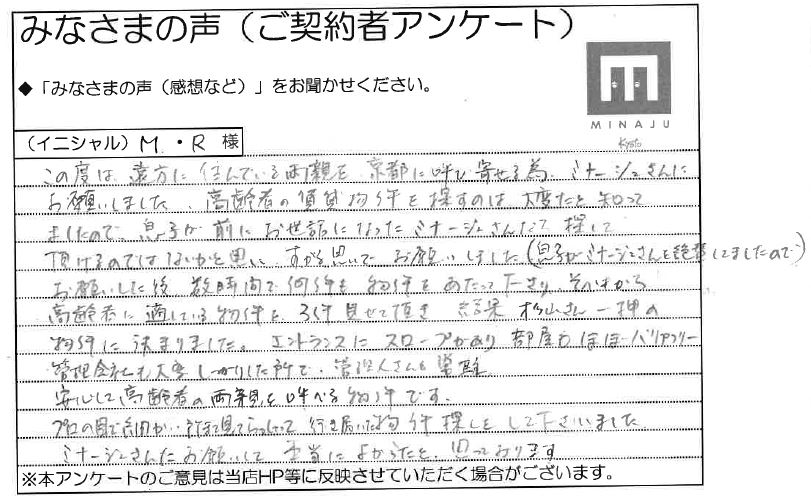 みなさまの声（ご契約者アンケート）
◆「みなさまの声（感想など）」をお聞かせください。
MINAJU
Kyoto
（イニシャル）M・R 様
この度は、遠方に住んでいる両親を、京都に呼び寄せる為、ミナージュさんに
お願いしました。高齢者の賃貸物件を探すのは、大変だと知って
ましたので、息子が前にお世話になったミナージュさんなら探して
頂けるのではないかと思い、すがる思いでお願いしました（息子がミナージュさんを絶賛してましたので）
お願いした後、数時間で何件も物件をあたって下さり、その中から
高齢者に適している物件を、3件見せて頂き 結果 杉山さん一押の
物件に決まりました。エントランスにスロープがあり 部屋もほぼバリアフリー
管理会社も大変しっかりした所で、管理人さんも常駐
安心して高齢者の両親を呼べる物件です。
プロの目で細かい所まで見てらっしゃって 行き届いた物件探しをして下さいました
ミナージュさんにお願いして 本当によかったと、思っております
※本アンケートのご意見は当店HP等に反映させていただく場合がございます。